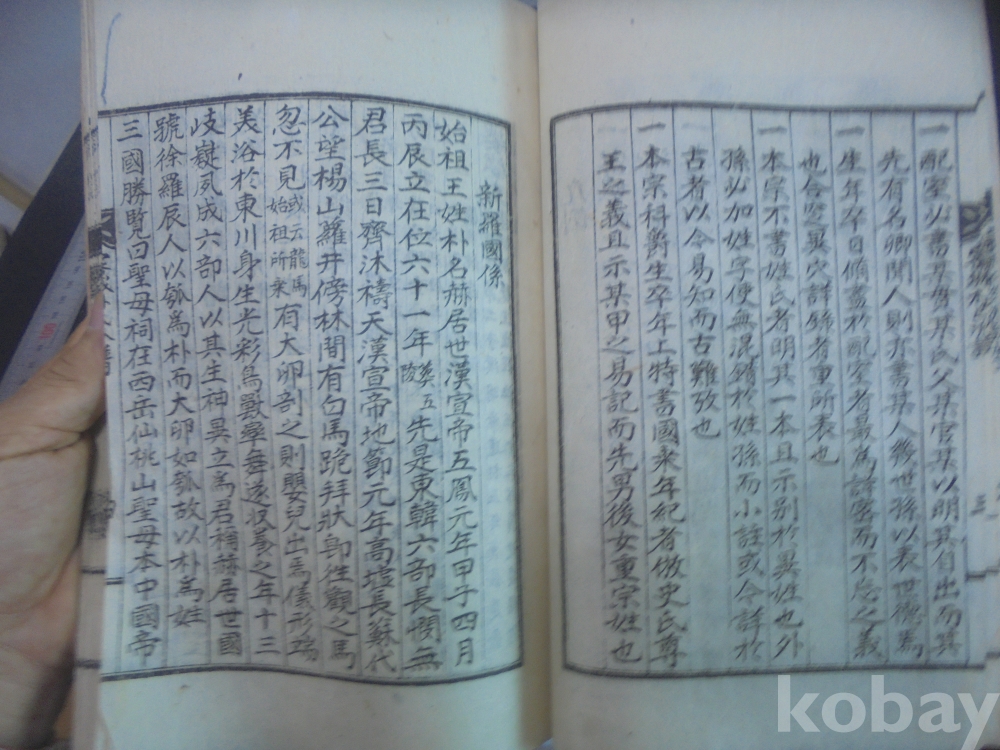 一配室必書某貫某氏父某官某以明其自出而其
先有名卿聞人則亦書某人幾世孫以表世德焉
一生年卒日備書於配室者最爲諱客而不忘之義
也合窆異穴詳錄者重所表也
一本宗不書姓氏者明其一本且示別於異姓也外
孫必加姓字便無混錯於姓孫而小註或今詳於
古者以今易知而古難攷也
一本宗科爵生卒年上特書國乘年紀者倣史氏尊
王之義且示某甲之易記而先男後女重宗姓也
新羅國係
始祖王姓朴名赫居世漢宣帝五鳳元年甲子四月
丙辰立在位六十一年葬五陵先是東韓六部長閔無
君長三日齊沐禱天漢宣帝地節元年高墟長蘇代
公望楊山蘿井傍林間有白馬跪拜狀卽往觀之馬
忽不見或云龍馬始祖所乘有大卵剖之則嬰兒出焉儀形端
美浴於東川身生光彩鳥獸率舞遂收養之年十三
岐嶷夙成六部人以其生神異立爲君稱赫居世國
號徐羅辰人以瓠爲朴而大卵如瓠故以朴爲姓
三國勝覽曰聖母祠在西岳仙桃山聖母本中國帝
三
kobay